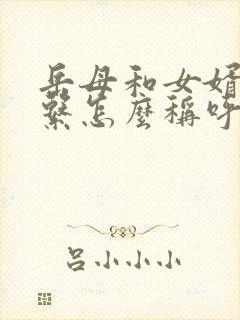 岳母和女婿
繫怎麼稱呼
吕小小小